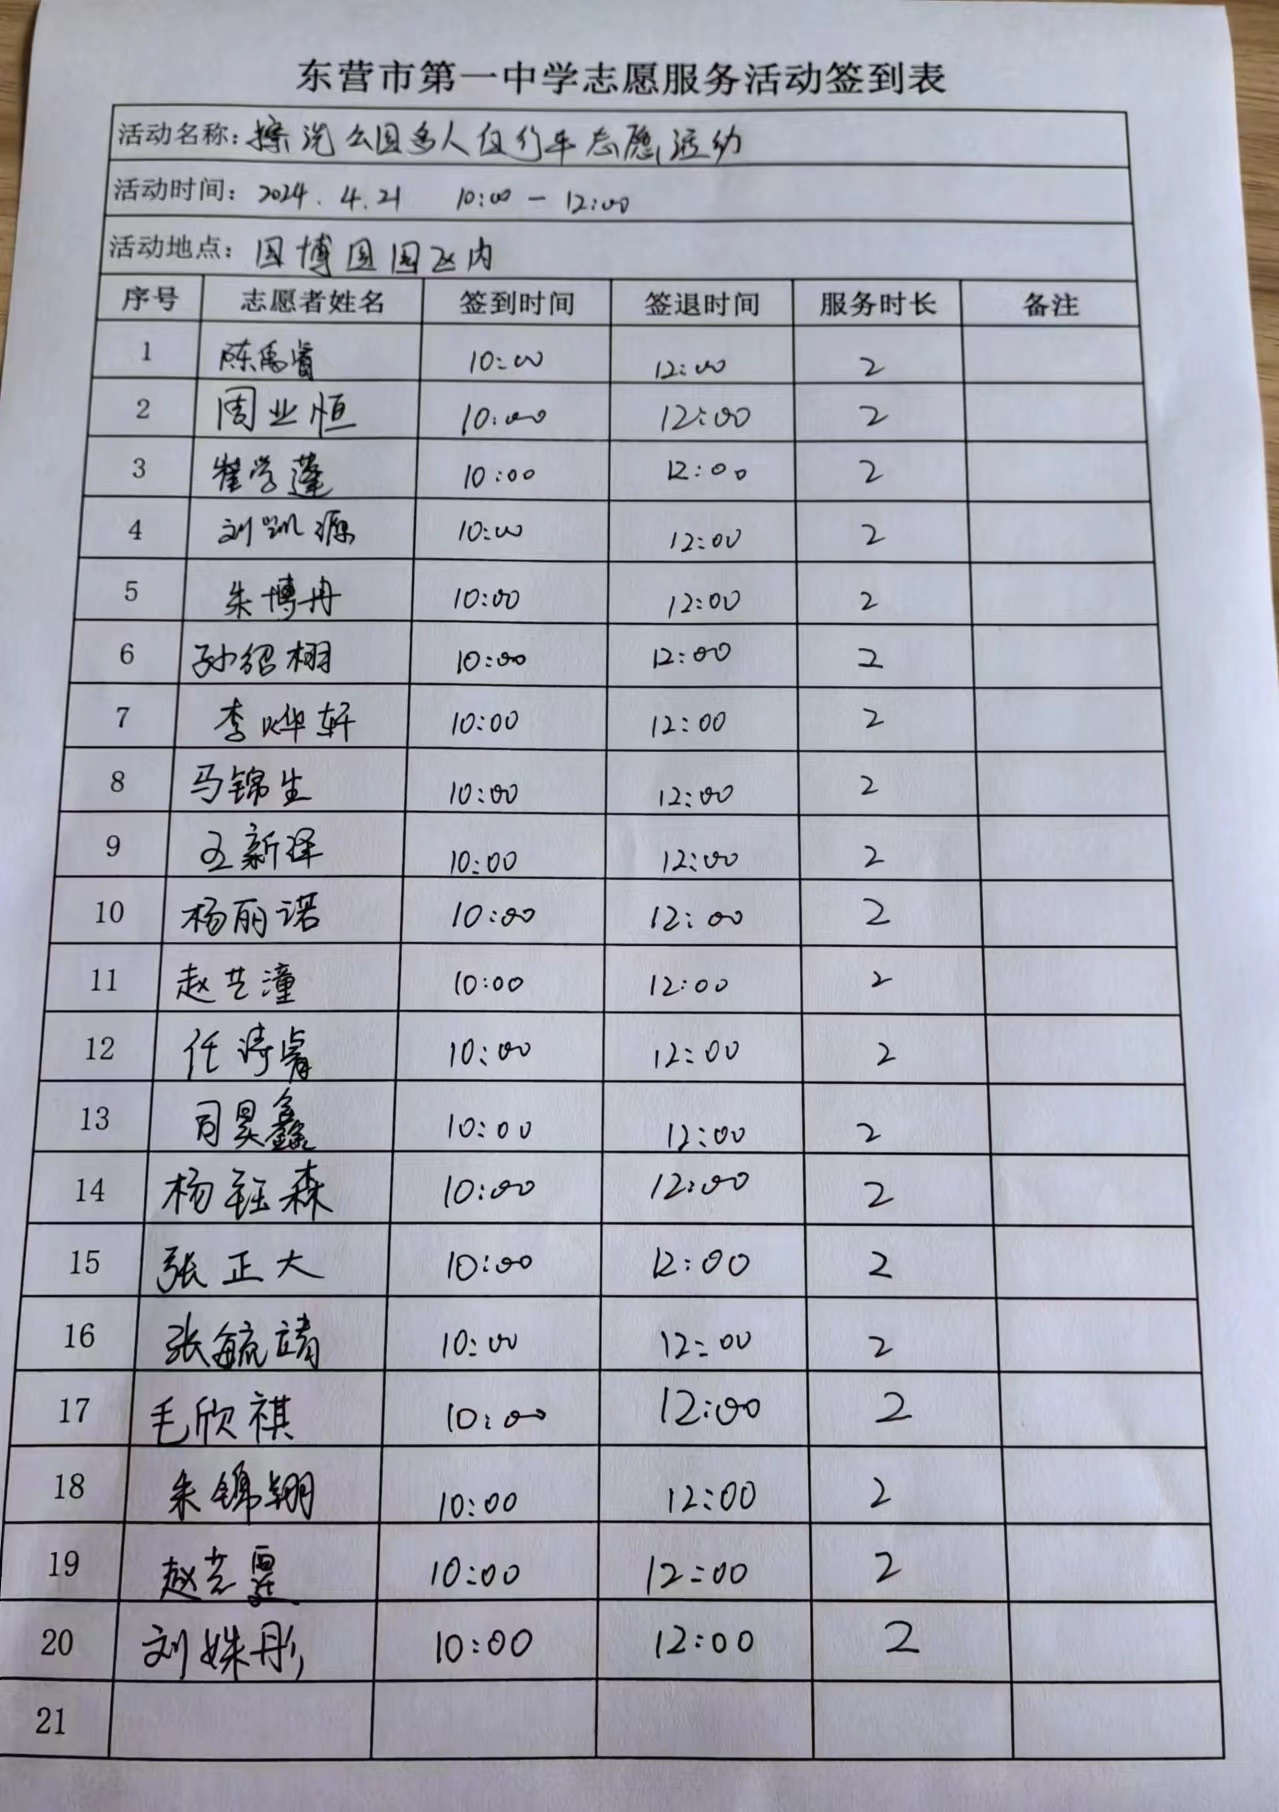 东营市第一中学志愿服务活动签到表
活动名称：擦洗公园多人自行车志愿活动
活动时间：2024.4.21 10:00-12:00
活动地点：园博园园区内
序号 志愿者姓名 签到时间 签退时间 服务时长 备注
1 陈禹睿 10:00 12:00 2
2 周业恒 10:00 12:00 2
3 崔学蓬 10:00 12:00 2
4 刘凯源 10:00 12:00 2
5 朱博冉 10:00 12:00 2
6 孙绍栩 10:00 12:00 2
7 李烨轩 10:00 12:00 2
8 马锦生 10:00 12:00 2
9 王新泽 10:00 12:00 2
10 杨丽诺 10:00 12:00 2
11 赵艺潼 10:00 12:00 2
12 任涛睿 10:00 12:00 2
13 司昊鑫 10:00 12:00 2
14 杨钰森 10:00 12:00 2
15 张正大 10:00 12:00 2
16 张毓靖 10:00 12:00 2
17 毛欣祺 10:00 12:00 2
18 朱锦翔 10:00 12:00 2
19 赵艺 10:00 12:00 2
20 刘姝彤 10:00 12:00 2
21